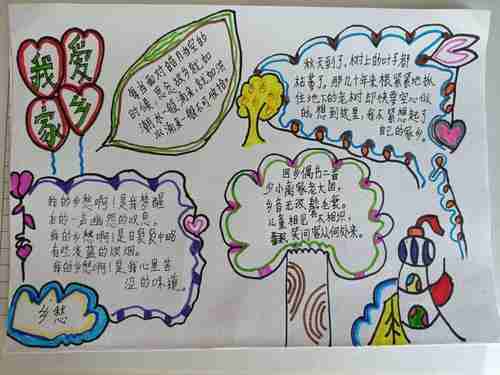 我爱
家乡
每当面对皓月当空的
时候,思念故乡就如
潮水一般涌来,就如洪
水涌来,锐不可挡。
秋天到了,树上的叶子都
枯黄了,那几十年来根紧紧地抓
住地下的老树即使要空心似
的,想到这里,我不禁想起了
自己的家乡。
我的乡愁啊!是我梦醒
来的一声幽然的叹息。
我的乡愁啊!是日
有些淡蓝的炊烟。
我的乡愁啊!是我心里苦
涩的味道。
乡愁
回乡偶书二首
少小离家老大回,
乡音无改鬓毛衰。
儿童相见不相识,
笑问客从何处来。